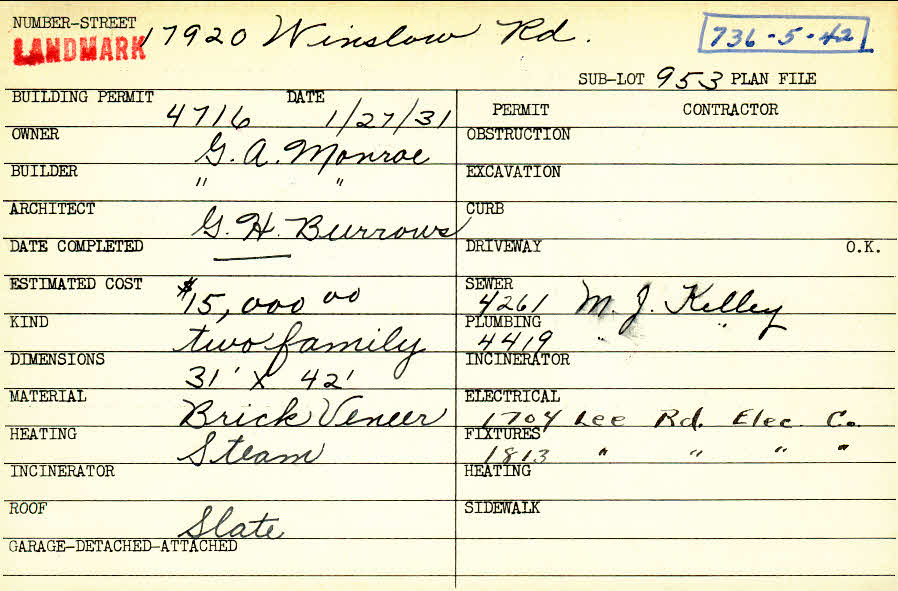 NUMBER-STREET
LANDMARK 17920 Winslow Rd.
736-5-42
SUB-LOT 953 PLAN FILE
BUILDING PERMIT 4716 DATE 1/27/31
PERMIT CONTRACTOR
OWNER G. A. Monroe
OBSTRUCTION
BUILDER " "
EXCAVATION
ARCHITECT G. H. Burrows
CURB
DATE COMPLETED —
DRIVEWAY O.K.
ESTIMATED COST $15,000 00
SEWER 4261 M. J. Kelley
KIND two family
PLUMBING 4419 " "
DIMENSIONS 31' X 42'
INCINERATOR
MATERIAL Brick Veneer
ELECTRICAL 1704 Lee Rd. Elec. Co.
HEATING Steam
FIXTURES 1813 " " " "
INCINERATOR
HEATING
ROOF Slate
SIDEWALK
GARAGE-DETACHED-ATTACHED